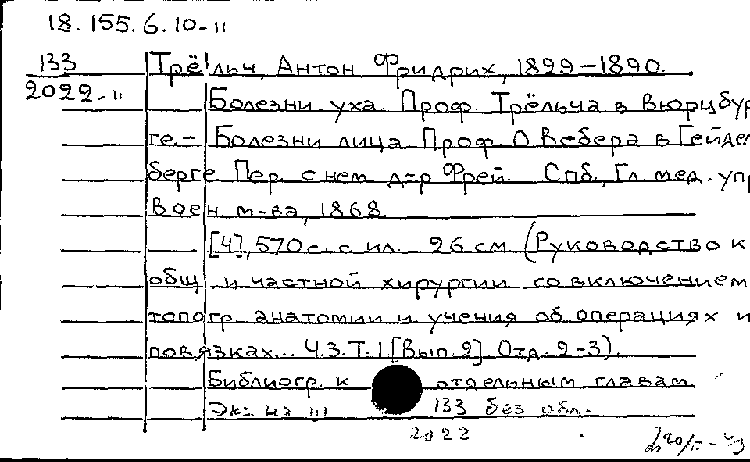 18.155.6.10-11
133 Трёльч, Антон Фридрих, 1829-1890.
2022-11 Болезни уха Проф. Трёльча в Вюрцбур
ге.- Болезни лица Проф. О Вебера в Гейдел
берге Пер. с нем. д-р Фрей. Спб., Гл. мед. упр
воен м-ва, 1868.
[4], 570 с. с ил. 26 см (Руководство к
общ. и частной хирургии со включением
топогр. анатомии и учения об операциях и
повязках... Ч.3. Т.1 [Вып. 2] Отд. 2-3).
Библиогр. к отдельным главам
Экз на 111 133 без обл.
2022